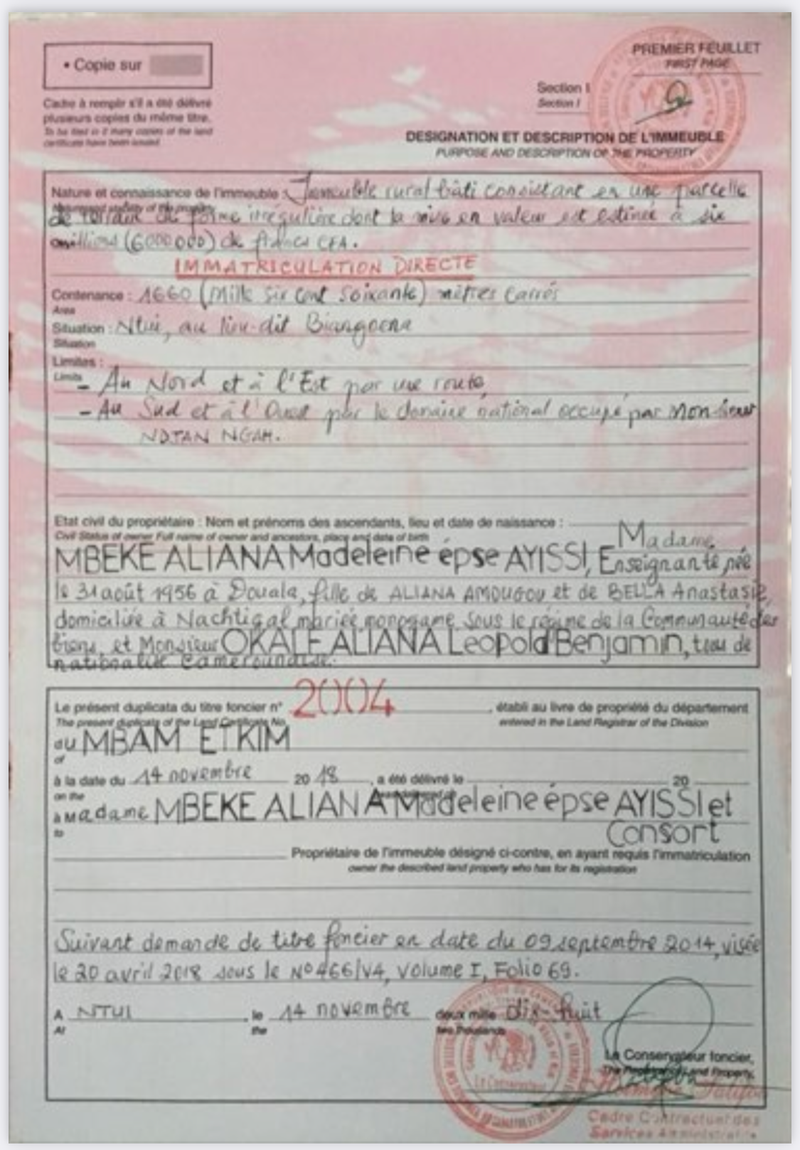 • Copie sur
Cadre à remplir s'il a été délivré
plusieurs copies du même titre.
To be filed in if many copies of the land
certificate have been issued
PREMIER FEUILLET
FIRST PAGE
Section I
Section I
DESIGNATION ET DESCRIPTION DE L'IMMEUBLE
PURPOSE AND DESCRIPTION OF THE PROPERTY
Nature et connaissance de l'immeuble : Immeuble rural bâti consistant en une parcelle
de terrain de forme irrégulière dont la mise en valeur est estimée à six
millions (6000000) de francs CFA.
IMMATRICULATION DIRECTE
Contenance : 1660 (Mille six cent soixante) mètres carrés
Area
Situation : Ntui, au lieu-dit Biangoena
Situation
Limites :
Limits
- Au Nord et à l'Est par une route,
- Au Sud et à l'Ouest par le domaine national occupé par Monsieur
NDTAN NGAH.
Etat civil du propriétaire : Nom et prénoms des ascendants, lieu et date de naissance :
Civil Status of owner Full name of owner and ancestors, place and date of birth
Madame
MBEKE ALIANA Madeleine épse AYISSI, Enseignante, née
le 31 août 1956 à Douala, fille de ALIANA AMOUGOU et de BELLA Anastasie,
domiciliée à Nachtigal mariée monogame sous le régime de la Communauté des
biens, et Monsieur OKALE ALIANA Leopold Benjamin, tous de
nationalité Camerounaise.
Le présent duplicata du titre foncier n° 2004, établi au livre de propriété du département
The present duplicata of the Land Certificate No. entered in the Land Registrar of the Division
du MBAM ET KIM
of
à la date du 14 novembre 2018, a été délivré le 20
on the
à Madame MBEKE ALIANA Madeleine épse AYISSI et
to
Consort
Propriétaire de l'immeuble désigné ci-contre, en ayant requis l'immatriculation
owner the described land property who has for its registration
Suivant demande de titre foncier en date du 09 septembre 2014, visée
le 20 avril 2018 sous le N° 466/V4, Volume I, Folio 69.
A NTUI, le 14 novembre deux mille Dix-huit
At the two thousands
Le Conservateur foncier,
The Registrar Land Property,
Cadre Contractuel des
Services Administratifs